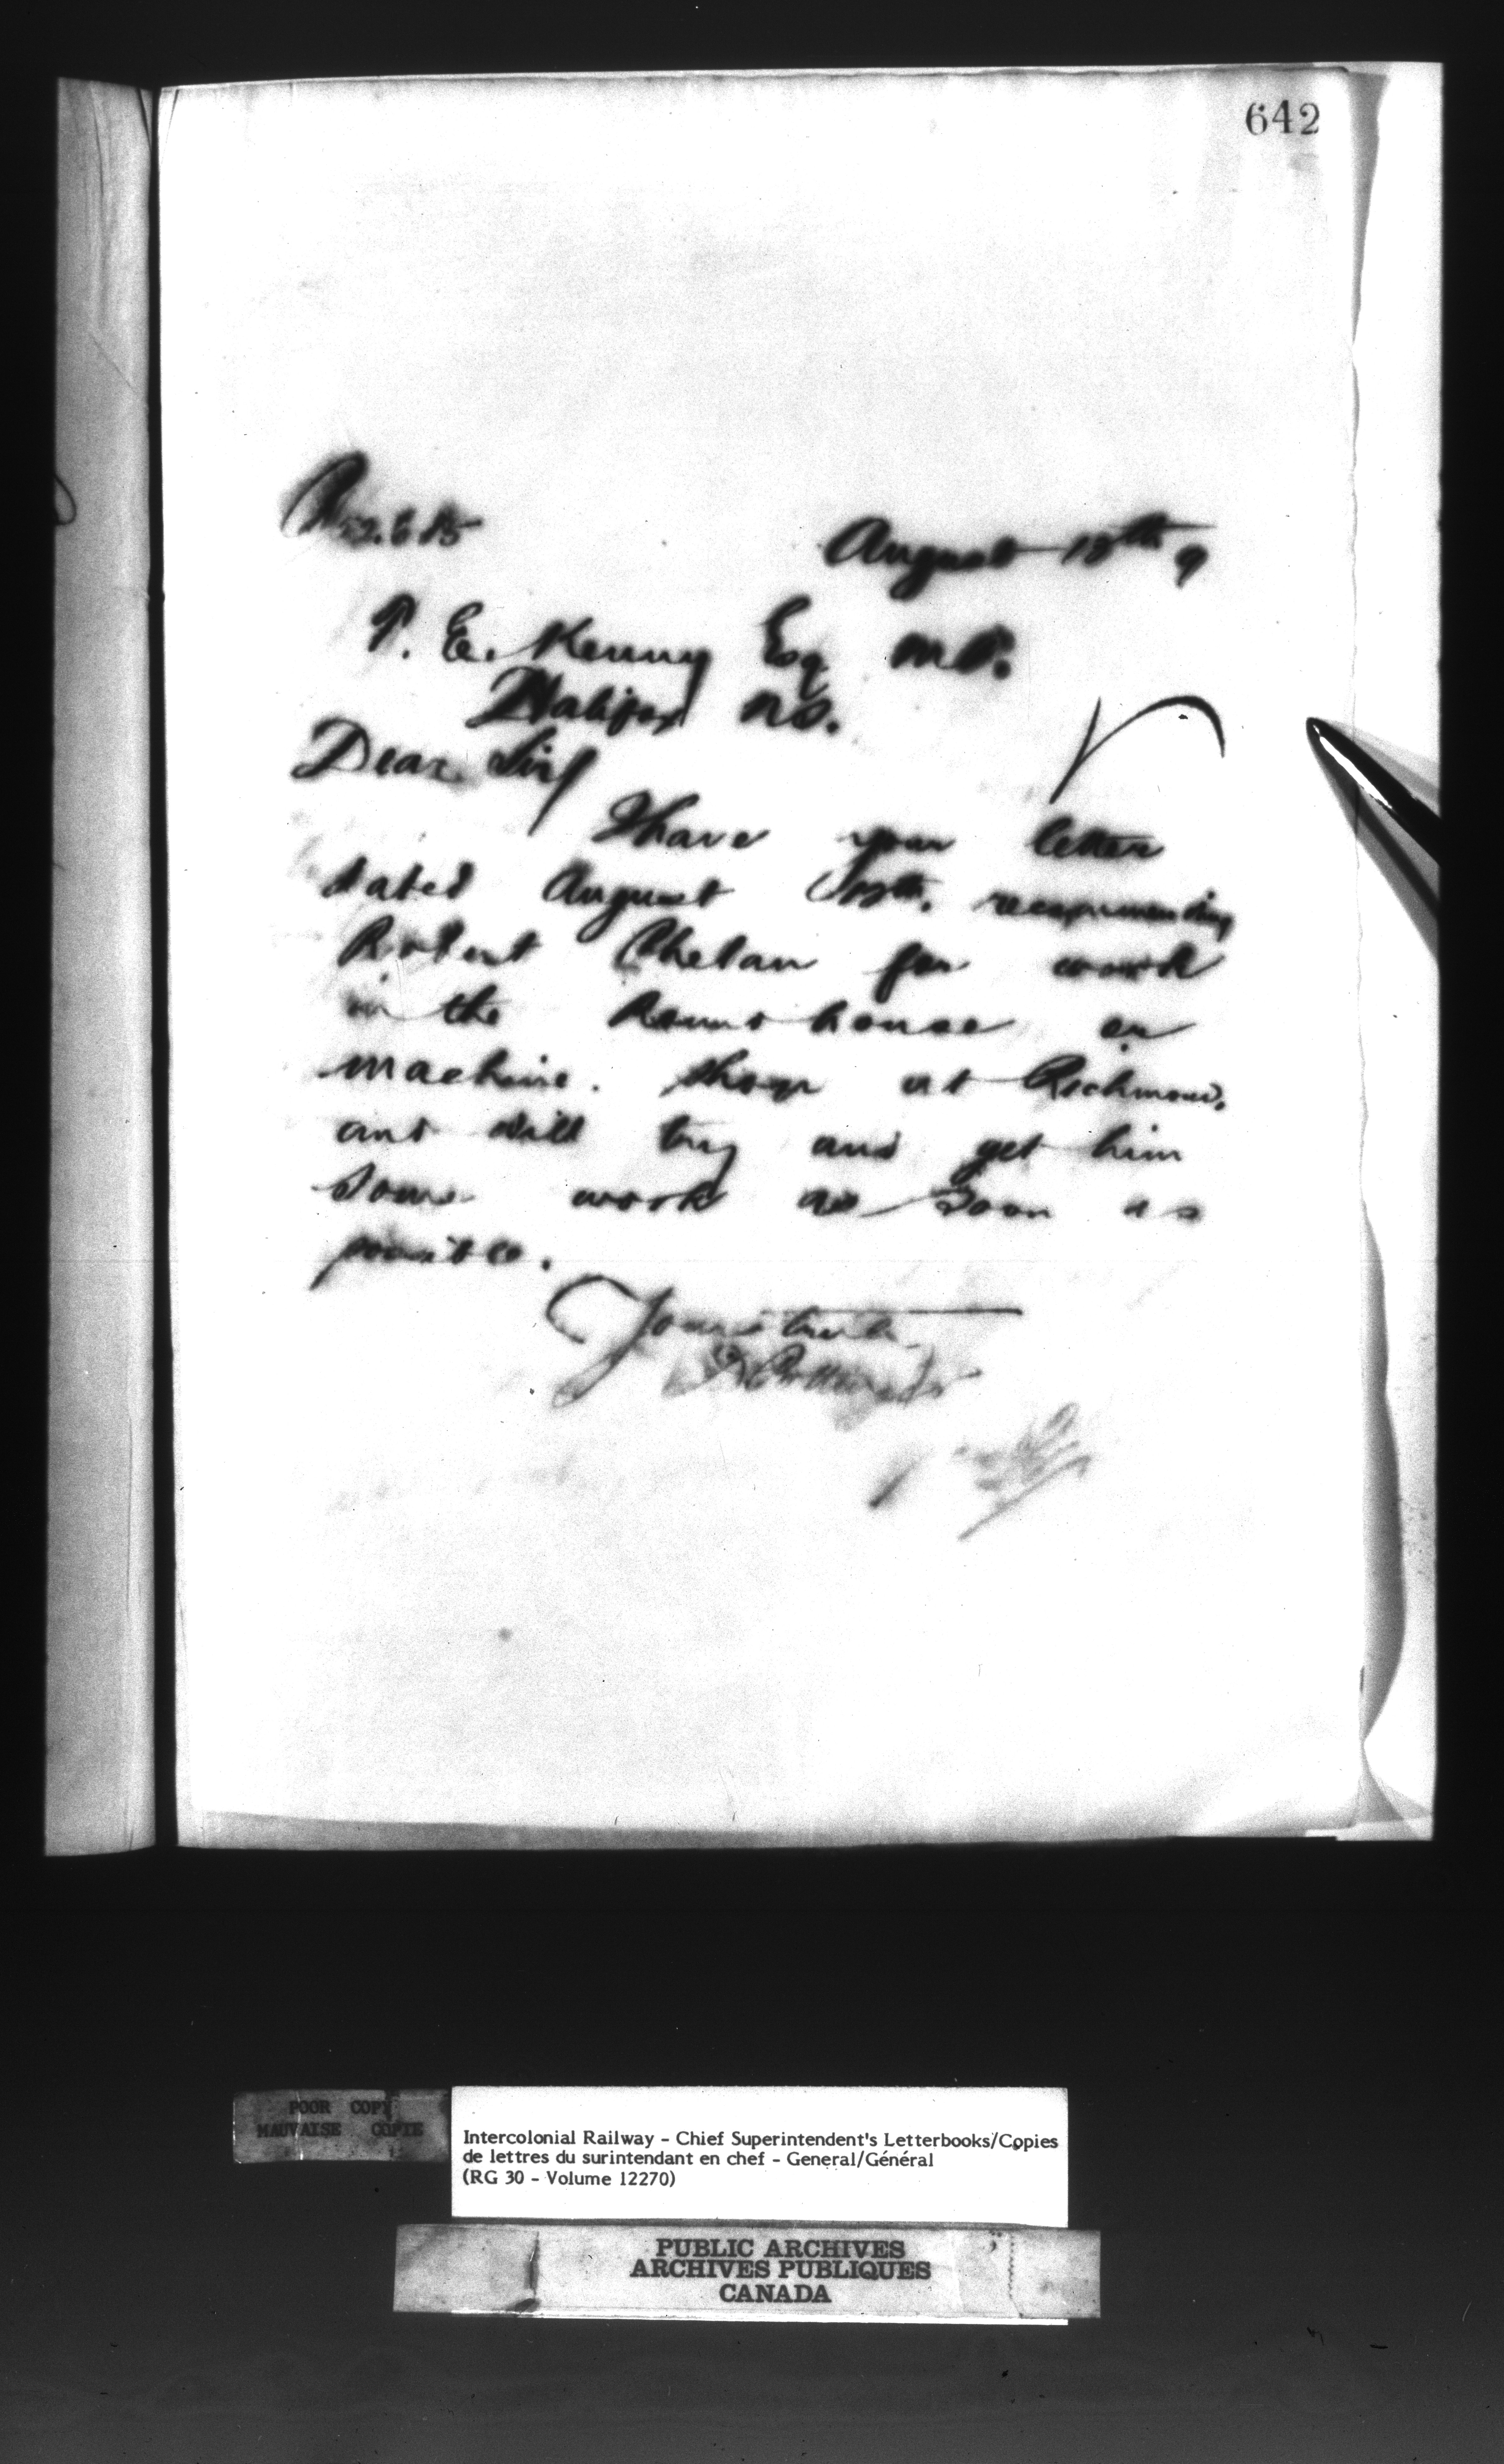 642
August 18th 9
T. E. Kenny Esq M.P.
Halifax N.S.
Dear Sir/
I have your letter
dated August recommending
Robert Phelan for work
in the Round house or
machine shop at Richmond,
and will try and get him
some work as soon as
possible.
Yours truly
D Pottinger
POOR COPY
MAUVAISE COPIE
Intercolonial Railway - Chief Superintendent's Letterbooks/Copies
de lettres du surintendant en chef - General/Général
(RG 30 - Volume 12270)
PUBLIC ARCHIVES
ARCHIVES PUBLIQUES
CANADA